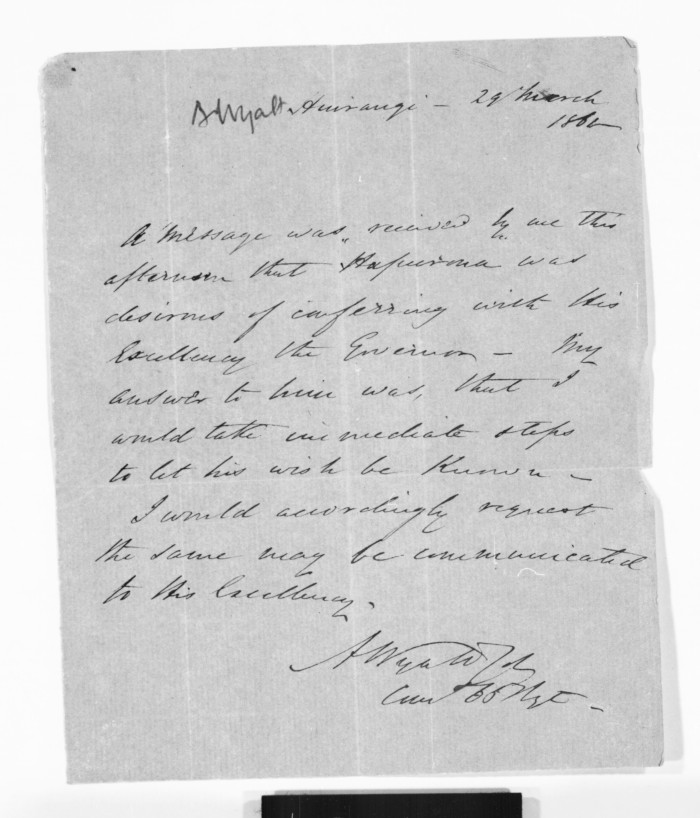 A Wyatt Huirangi - 29 March
1860
A message was received by me this
afternoon that "Hapurona" was
desirous of conferring with His
Excellency the Governor - My
answer to him was, that I
would take immediate steps
to let his wish be known -
I would accordingly request
the same may be communicated
to His Excellency.
A Wyatt
65 Regt -